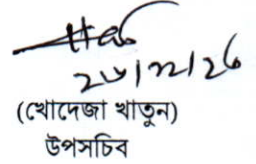 ২৮/১২/২৬
(খোদেজা খাতুন)
উপসচিব